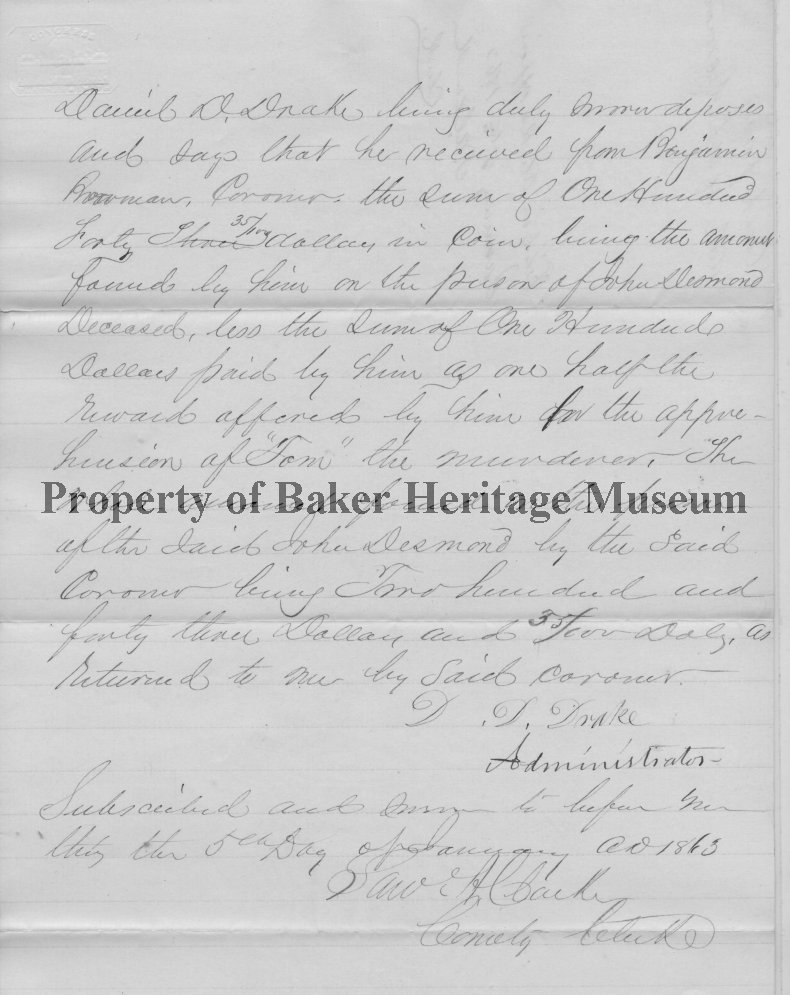 Daniel D. Drake being duly sworn deposes
and says that he received from Benjamin
Browman, Coroner. the sum of One Hundred
Forty Three 35/100 dollars in coin, being the amount
found by him on the person of John Desmond
Deceased, less the sum of One Hundred
Dollars paid by him as one half the
reward offered by him for the appre-
hension of "Tom" the murderer. The
Property of Baker Heritage Museum
of the said John Desmond by the said
Coroner being Two hundred and
forty three Dollars and 35/100 Dols, as
returned to me by said coroner.
D. D. Drake
Administrator
Subscribed and sworn to before me
this the 5th Day of January AD 1863
Clarke
County Clerk